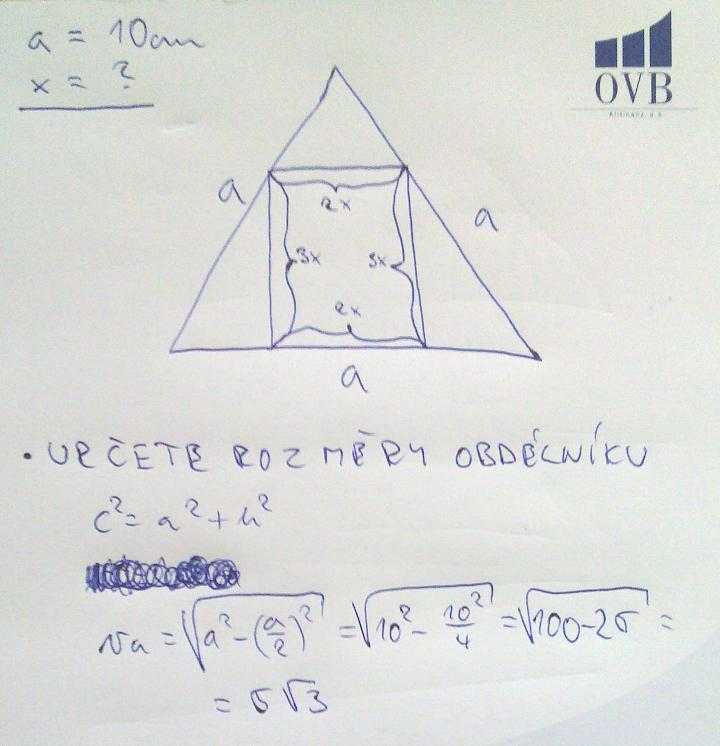 a = 10cm
x = ?
OVB
Allfinanz, a.s.
a
2x
a
3x
3x
2x
a
• URČETE ROZMĚRY OBDÉLNÍKU
c² = a² + b²
va = √(a² - (a/2)²) = √(10² - 10²/4) = √(100-25) =
= 5√3